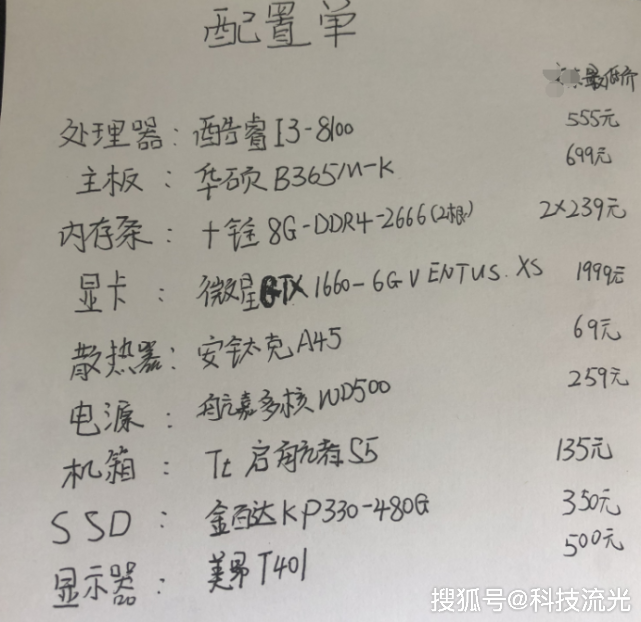 配置单
最低价
处理器：酷睿I3-8100 555元
主板：华硕B365M-K 699元
内存条：十铨8G-DDR4-2666(2根) 2X239元
显卡：微星GTX1660-6G VENTUS XS 1999元
散热器：安钛克A45 69元
电源：航嘉多核WD500 259元
机箱：Tt启航者S5 135元
SSD：金百达KP330-480G 350元
显示器：美昂T401 500元
搜狐号@科技流光